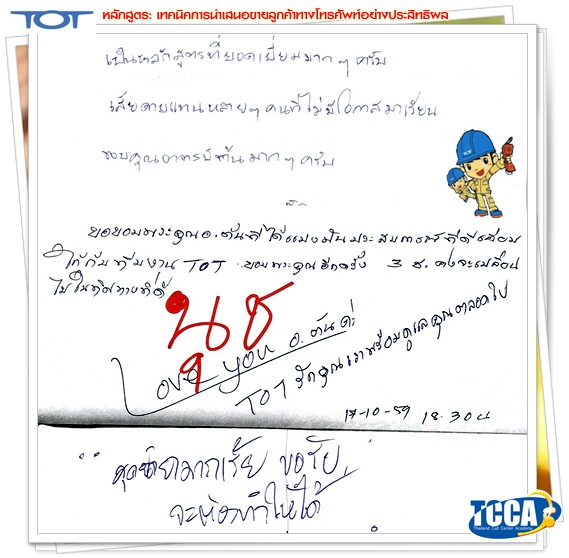 TOT หลักสูตร: เทคนิคการนำเสนอขายลูกค้าทางโทรศัพท์อย่างประสิทธิผล
เป็นหลักสูตรที่ยอดเยี่ยมมาก ๆ ครับ
เสียดายแทนหลายๆ คนที่ไม่มีโอกาสมาเรียน
ขอบคุณอาจารย์ต้นมาก ๆ ครับ
TOT
ขอขอบพระคุณ อ.ต้นที่ได้แบ่งปันประสบการณ์ที่ดีเยี่ยม
ให้กับทีมงาน TOT ขอบพระคุณอีกครั้ง 3 ช.
ไปในทิศทางที่ดี
Love you อ.ต้นค่ะ
TOT รักคุณเราพร้อมดูแลคุณตลอดไป
17-10-59 18.30น
จะต้องทำให้ได้
TCCA
Thailand Call Center Academy